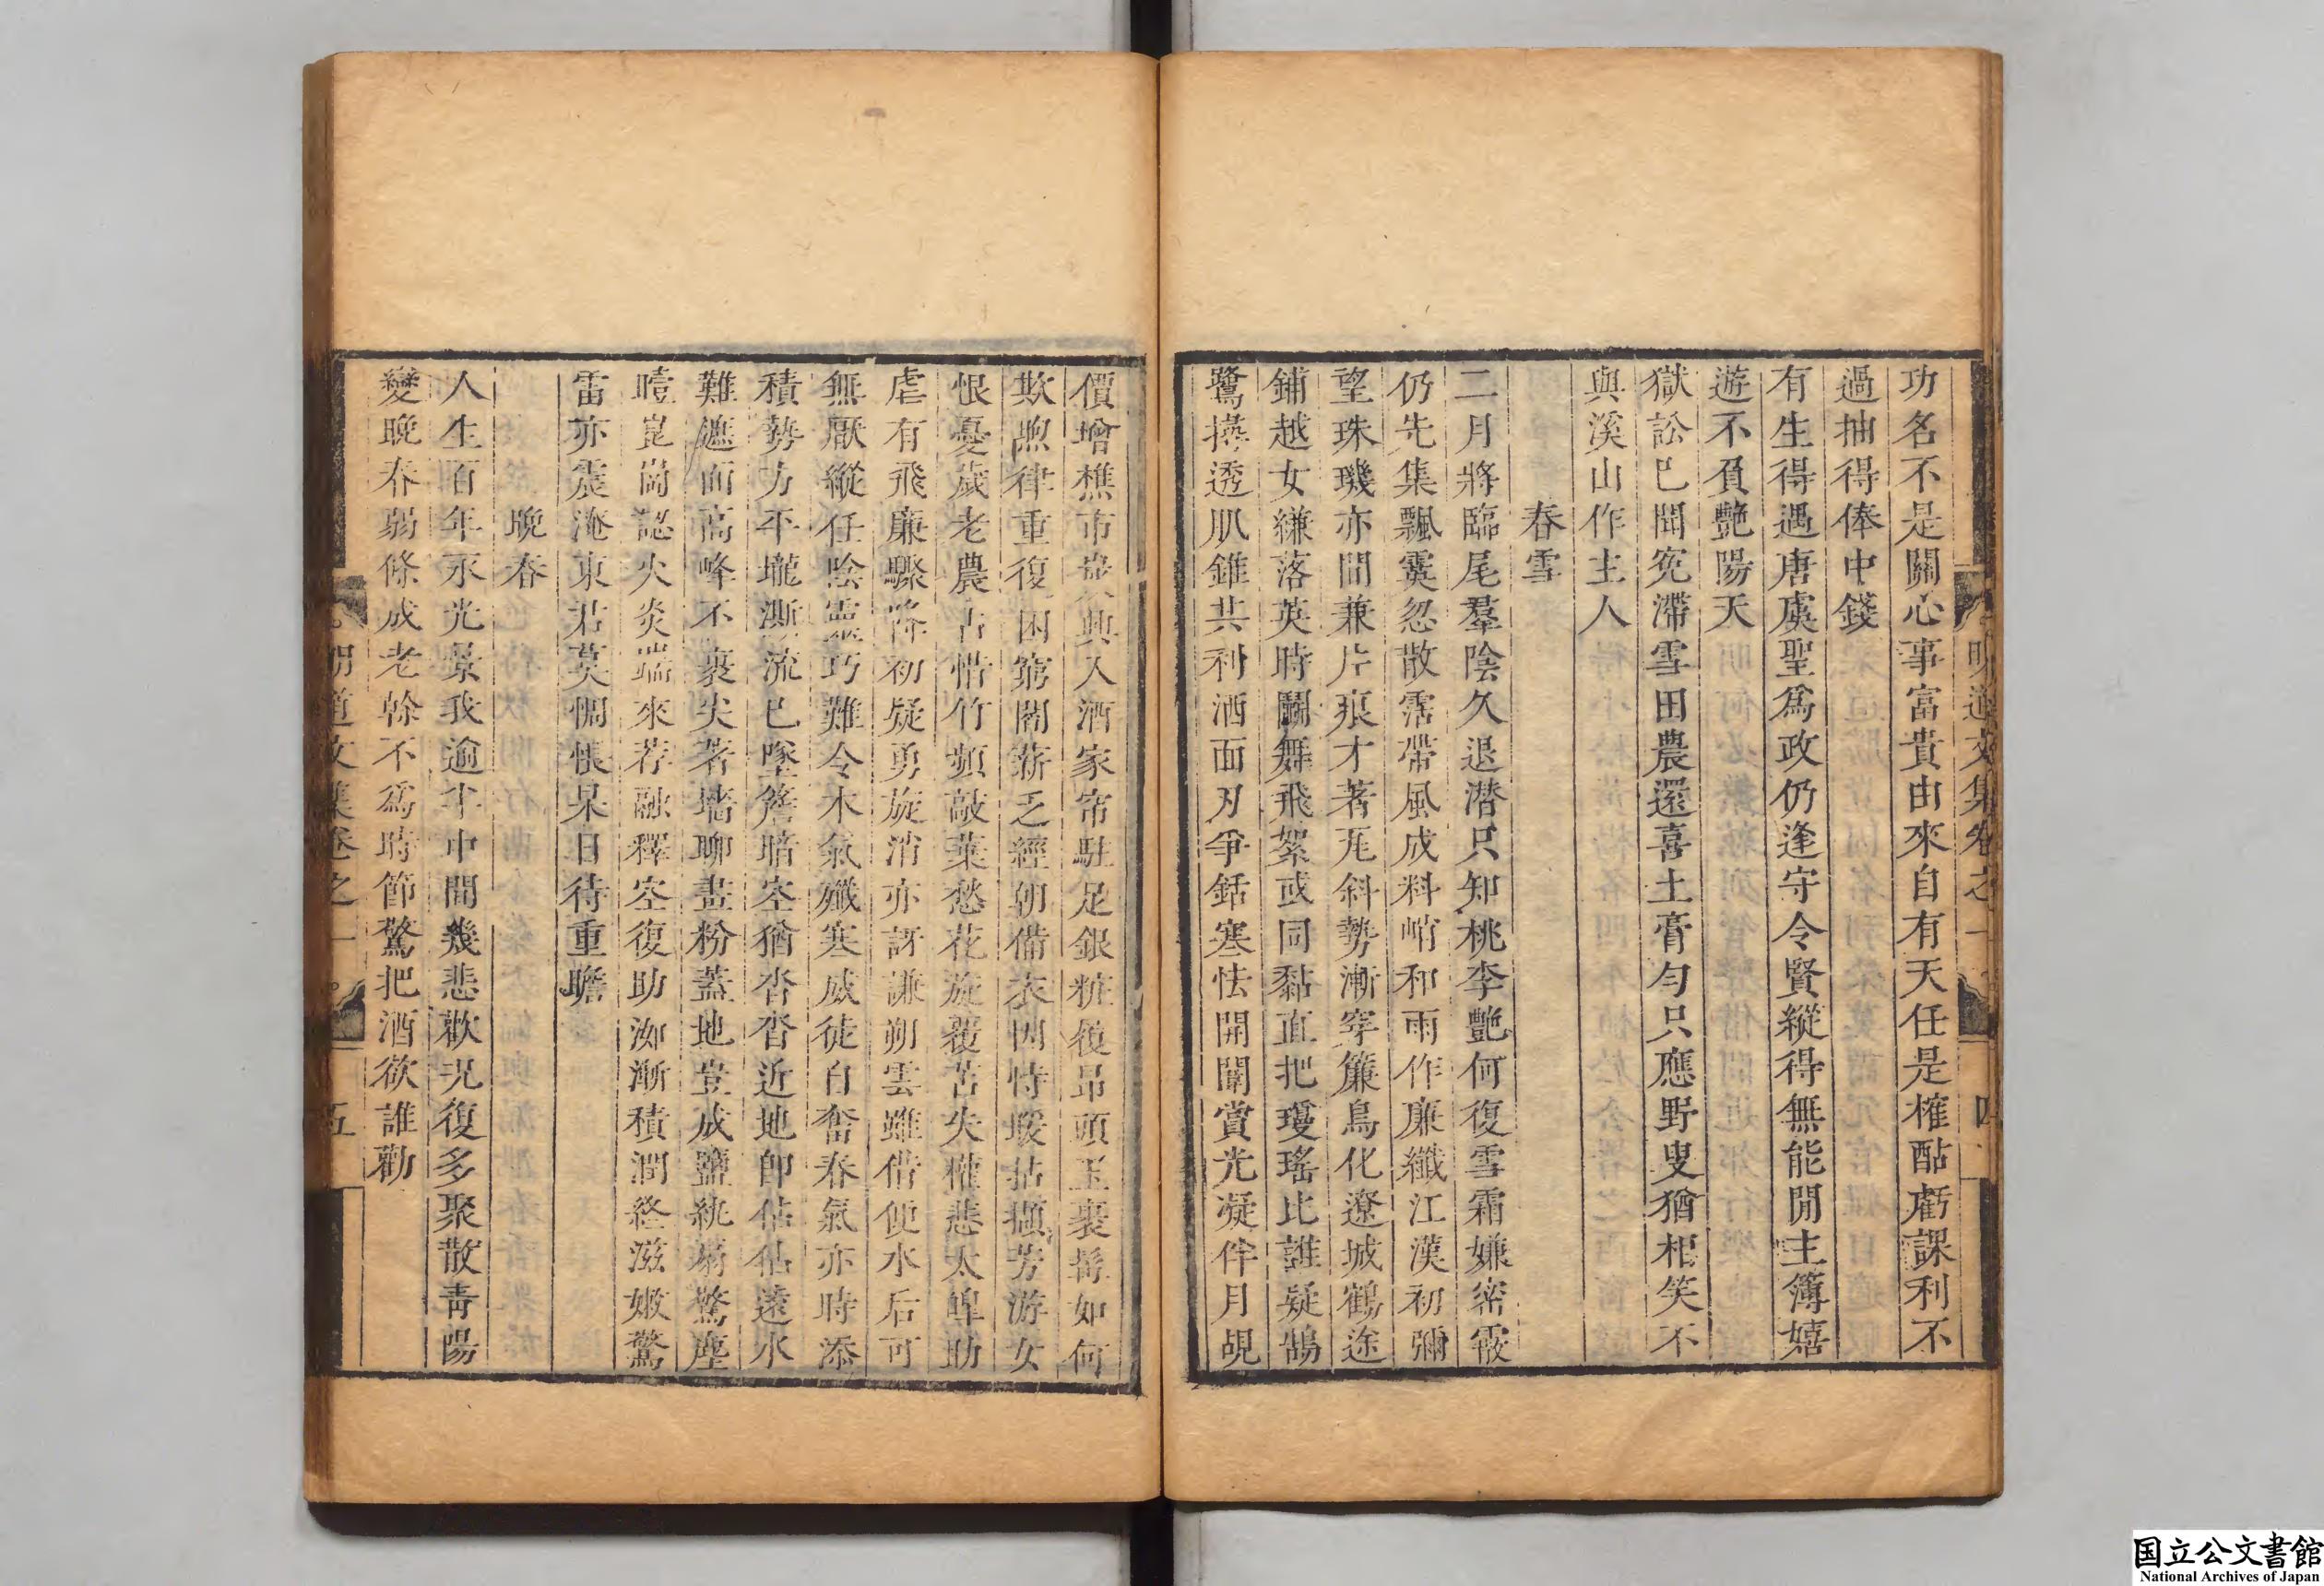 明道文集卷之一
四
功名不是關心事富貴由來自有天任是榷酤虧課利不
過抽得俸中錢
有生得遇唐虞聖爲政仍逢守令賢縱得無能閒主簿嬉
遊不負艷陽天
獄訟已聞寃滯雪田農還喜土膏勻只應野叟猶相笑不
與溪山作主人
春雪
二月將臨尾羣陰久退潜只知桃李艷何復雪霜嫌密霰
仍先集飄霙忽散霑帶風成料峭和雨作廉纖江漢初彌
望珠璣亦間兼片痕才著瓦斜勢漸穿簾鳥化遼城鶴途
鋪越女縑落英時鬭舞飛絮或同黏直把瓊瑤比誰疑鵠
鷺撏透肌錐共利洒面刃爭銛寒怯開闈賞光凝伴月覘
價增樵市炭興入酒家帘駐足銀粧履昂頭玉裹髯如何
欺煦律重復困窮閻薪乏經朝備衣四恃暖拈擷芳游女
恨憂歲老農占惜竹頻敲葉愁花旋覆苫失權悲太皥助
虐有飛廉驟降初疑勇旋消亦訝謙朔雲雖借便水后可
無厭縱任陰靈巧難令木氣殲寒威徒自奮春氣亦時添
積勢力平壠澌流已墜簷暗空猶沓沓近地卽佔佔遠水
難遮面高峰不裹尖著墻聊畫粉蓋地豈成鹽統扇驚塵
曀崑崗認火炎端來荐融釋空復助洳漸積潤終滋嫩驚
雷亦震淹東君莫惆悵杲日待重瞻
晚春
人生百年永光景我逾半中間幾悲歡况復多聚散靑陽
變晚春弱條成老榦不爲時節驚把酒欲誰勸
明道文集卷之一
五
国立公文書館
National Archives of Japan